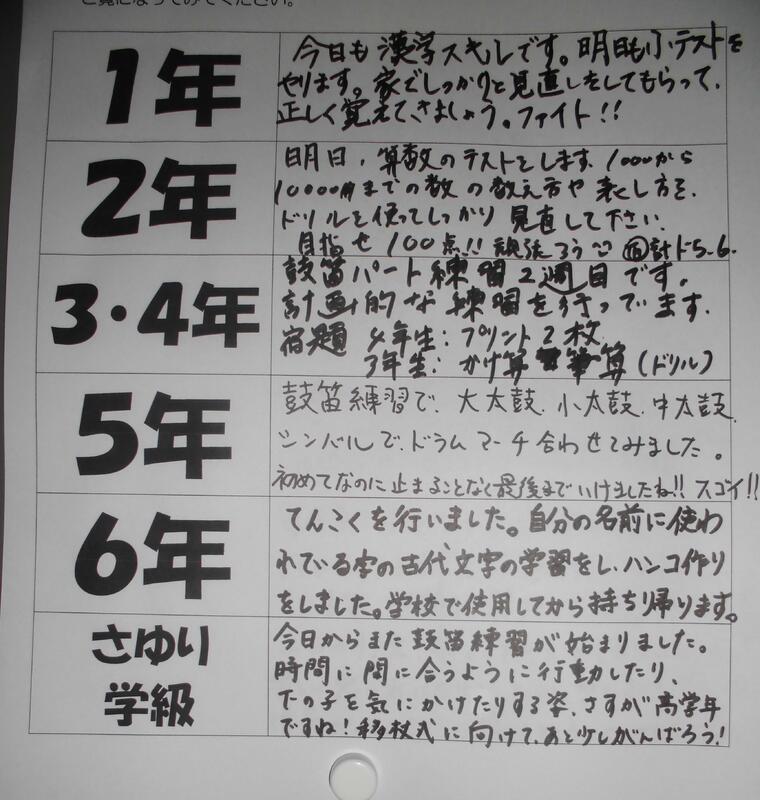 ご覧になってみてください。
1年
今日も漢字スキルです。明日も小テストを
やります。家でしっかりと見直しをしてもらって、
正しく覚えてきましょう。ファイト!!
2年
明日、算数のテストをします。1000から
10000までの数の数え方や表し方を、
ドリルを使ってしっかり見直して下さい。
目指せ100点!! 頑張ろう 宿計ド5.6.
3・4年
鼓笛パート練習2週目です。
計画的な練習を行ってます。
宿題 4年生:プリント2枚
3年生:かけ算筆算(ドリル)
5年
鼓笛練習で、大太鼓、小太鼓、中太鼓、
シンバルで、ドラムマーチ合わせてみました。
初めてなのに止まることなく最後までいけましたね!! スゴイ!!
6年
てんこくを行いました。自分の名前に使わ
れている字の古代文字の学習をし、ハンコ作り
をしました。学校で使用してから持ち帰ります。
さゆり
学級
今日からまた鼓笛練習が始まりました。
時間に間に合うように行動したり、
下の子を気にかけたりする姿、さすが高学年
ですね!移杖式に向けて、あと少しがんばろう!